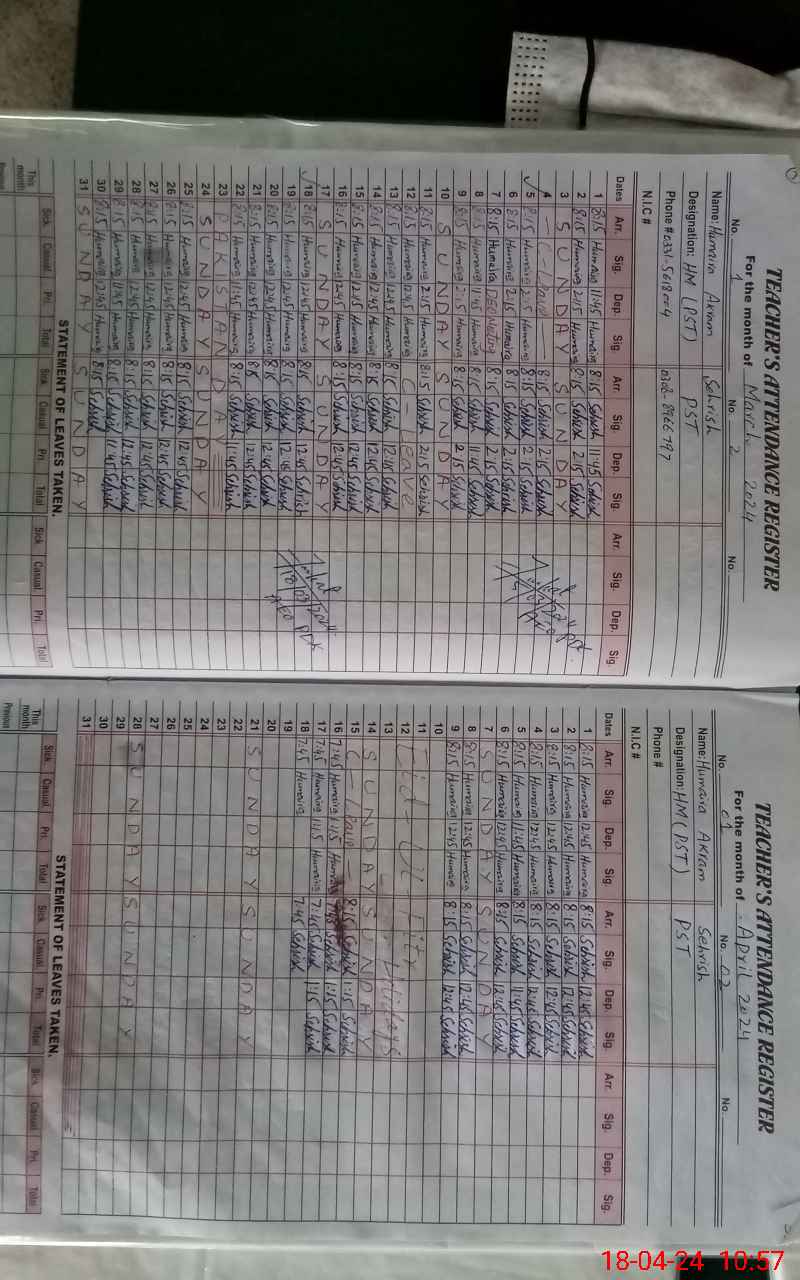 TEACHER'S ATTENDANCE REGISTER
For the month of March 2024
No. 1 No. 2 No.
Name: Humaira Akram Sehrish
Designation: HM (PST) PST
Phone #
N.I.C #
Dates Arr. Sig. Dep. Sig. Arr. Sig. Dep. Sig. Arr. Sig. Dep. Sig.
1 8:15 Humaira 11:45 Humaira 8:15 Sehrish 11:45 Sehrish
2 8:15 Humaira 2:15 Humaira 8:15 Sehrish 2:15 Sehrish
3 SUNDAY SUNDAY
4 — C-Leave — 8:15 Sehrish 2:15 Sehrish
5 8:15 Humaira 2:15 Humaira 8:15 Sehrish 2:15 Sehrish
6 8:15 Humaira 2:15 Humaira 8:15 Sehrish 2:15 Sehrish
7 8:15 Humaira 8:15 Sehrish 2:15 Sehrish
8 8:15 Humaira 11:45 Humaira 8:15 Sehrish 11:45 Sehrish
9 8:15 Humaira 2:15 Humaira 8:15 Sehrish 2:15 Sehrish
10 SUNDAY SUNDAY
11 8:15 Humaira 2:15 Humaira 8:15 Sehrish 2:15 Sehrish
12 8:15 Humaira 12:45 Humaira C-Leave
13 8:15 Humaira 12:45 Humaira 8:15 Sehrish 12:45 Sehrish
14 8:15 Humaira 12:45 Humaira 8:15 Sehrish 12:45 Sehrish
15 8:15 Humaira Humaira 8:15 Sehrish Sehrish
16 8:15 Humaira 12:45 Humaira 8:15 Sehrish 12:45 Sehrish
17 SUNDAY SUNDAY
18 8:15 Humaira 12:45 Humaira 8:15 Sehrish 12:45 Sehrish
19 8:15 Humaira 12:45 Humaira 8:15 Sehrish 12:45 Sehrish
20 8:15 Humaira 12:45 Humaira 8:15 Sehrish 12:45 Sehrish
21 8:15 Humaira 12:45 Humaira 8:15 Sehrish 12:45 Sehrish
22 8:15 Humaira 11:45 Humaira 8:15 Sehrish 11:45 Sehrish
23 PAKISTAN DAY
24 SUNDAY SUNDAY
25 8:15 Humaira 12:45 Humaira 8:15 Sehrish 12:45 Sehrish
26 8:15 Humaira 12:45 Humaira 8:15 Sehrish 12:45 Sehrish
27 8:15 Humaira 12:45 Humaira 8:15 Sehrish 12:45 Sehrish
28 8:15 Humaira 12:45 Humaira 8:15 Sehrish 12:45 Sehrish
29 8:15 Humaira 11:45 Humaira 8:15 Sehrish 11:45 Sehrish
30 8:15 Humaira 12:45 Humaira 8:15 Sehrish 12:45 Sehrish
31 SUNDAY SUNDAY
STATEMENT OF LEAVES TAKEN.
Sick Casual Pri. Total Sick Casual Pri. Total Sick Casual Pri. Total
This month
Previous
TEACHER'S ATTENDANCE REGISTER
For the month of April 2024
No. 01 No. 02 No.
Name: Humaira Akram Sehrish
Designation: HM (PST) PST
Phone #
N.I.C #
Dates Arr. Sig. Dep. Sig. Arr. Sig. Dep. Sig. Arr. Sig. Dep. Sig.
1 8:15 Humaira 12:45 Humaira 8:15 Sehrish 12:45 Sehrish
2 8:15 Humaira 12:45 Humaira 8:15 Sehrish 12:45 Sehrish
3 8:15 Humaira 12:45 Humaira 8:15 Sehrish 12:45 Sehrish
4 8:15 Humaira 12:45 Humaira 8:15 Sehrish 12:45 Sehrish
5 8:15 Humaira 11:45 Humaira 8:15 Sehrish 11:45 Sehrish
6 8:15 Humaira 12:45 Humaira 8:15 Sehrish 12:45 Sehrish
7 SUNDAY SUNDAY
8 8:15 Humaira 12:45 Humaira 8:15 Sehrish 12:45 Sehrish
9 8:15 Humaira 12:45 Humaira 8:15 Sehrish 12:45 Sehrish
10
11
12 Eid Ul Fitr
13 Holidays
14 SUNDAY SUNDAY
15 C-Leave — 8:15 Sehrish 1:15 Sehrish
16 7:45 Humaira 1:15 Humaira 7:45 Sehrish 1:15 Sehrish
17 7:45 Humaira 1:15 Humaira 7:45 Sehrish 1:15 Sehrish
18 7:45 Humaira 7:45 Sehrish
19
20
21 SUNDAY SUNDAY
22
23
24
25
26
27
28 SUNDAY SUNDAY
29
30
31
STATEMENT OF LEAVES TAKEN.
Sick Casual Pri. Total Sick Casual Pri. Total Sick Casual Pri. Total
This month
Previous
18-04-24 10:57